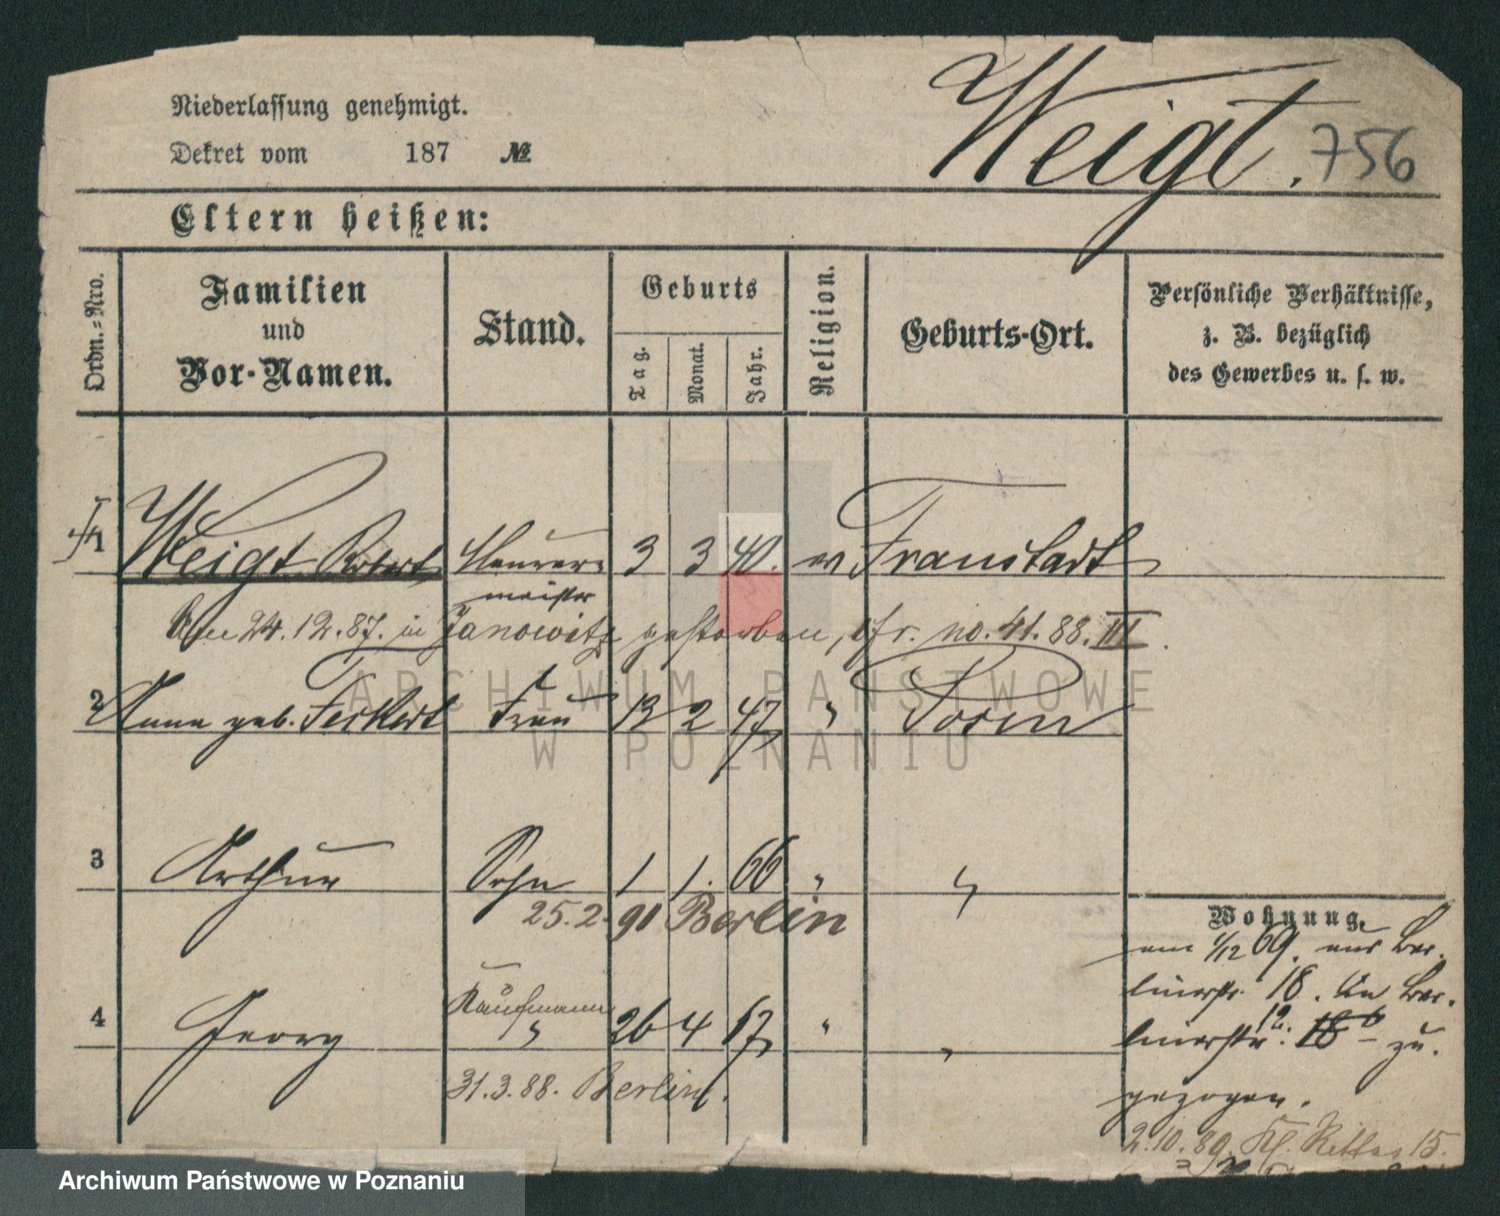 Niederlassung genehmigt.
Dekret vom 187 №
Weigt. 756
Eltern heißen:
Ordn.-Nro.
Familien
und
Vor-Namen.
Stand.
Geburts
Tag.
Monat.
Jahr.
Religion.
Geburts-Ort.
Persönliche Verhältnisse,
z. B. bezüglich
des Gewerbes u. s. w.
1 Weigt Robert Maurer= 3 3 40. ev Fraustadt
meister
Am 24.12.87. in Janowitz gestorben, cfr. no. 41. 88. III.
2 Anna geb. Feckert Frau 13 2 47 " Posen
3 Arthur Sohn 1 1. 66 " "
25.2. 91 Berlin
4 Georg Kaufmann " 26 4 67 " "
31.3.88. Berlin.
Wohnung.
am 1/12 69. aus Ber-
linerstr. 18. In Ber-
linerstr. 12. 18 zu-
gezogen.
2.10.89. Kl. Ritter 15.
ARCHIWUM PAŃSTWOWE
W POZNANIU
Archiwum Państwowe w Poznaniu